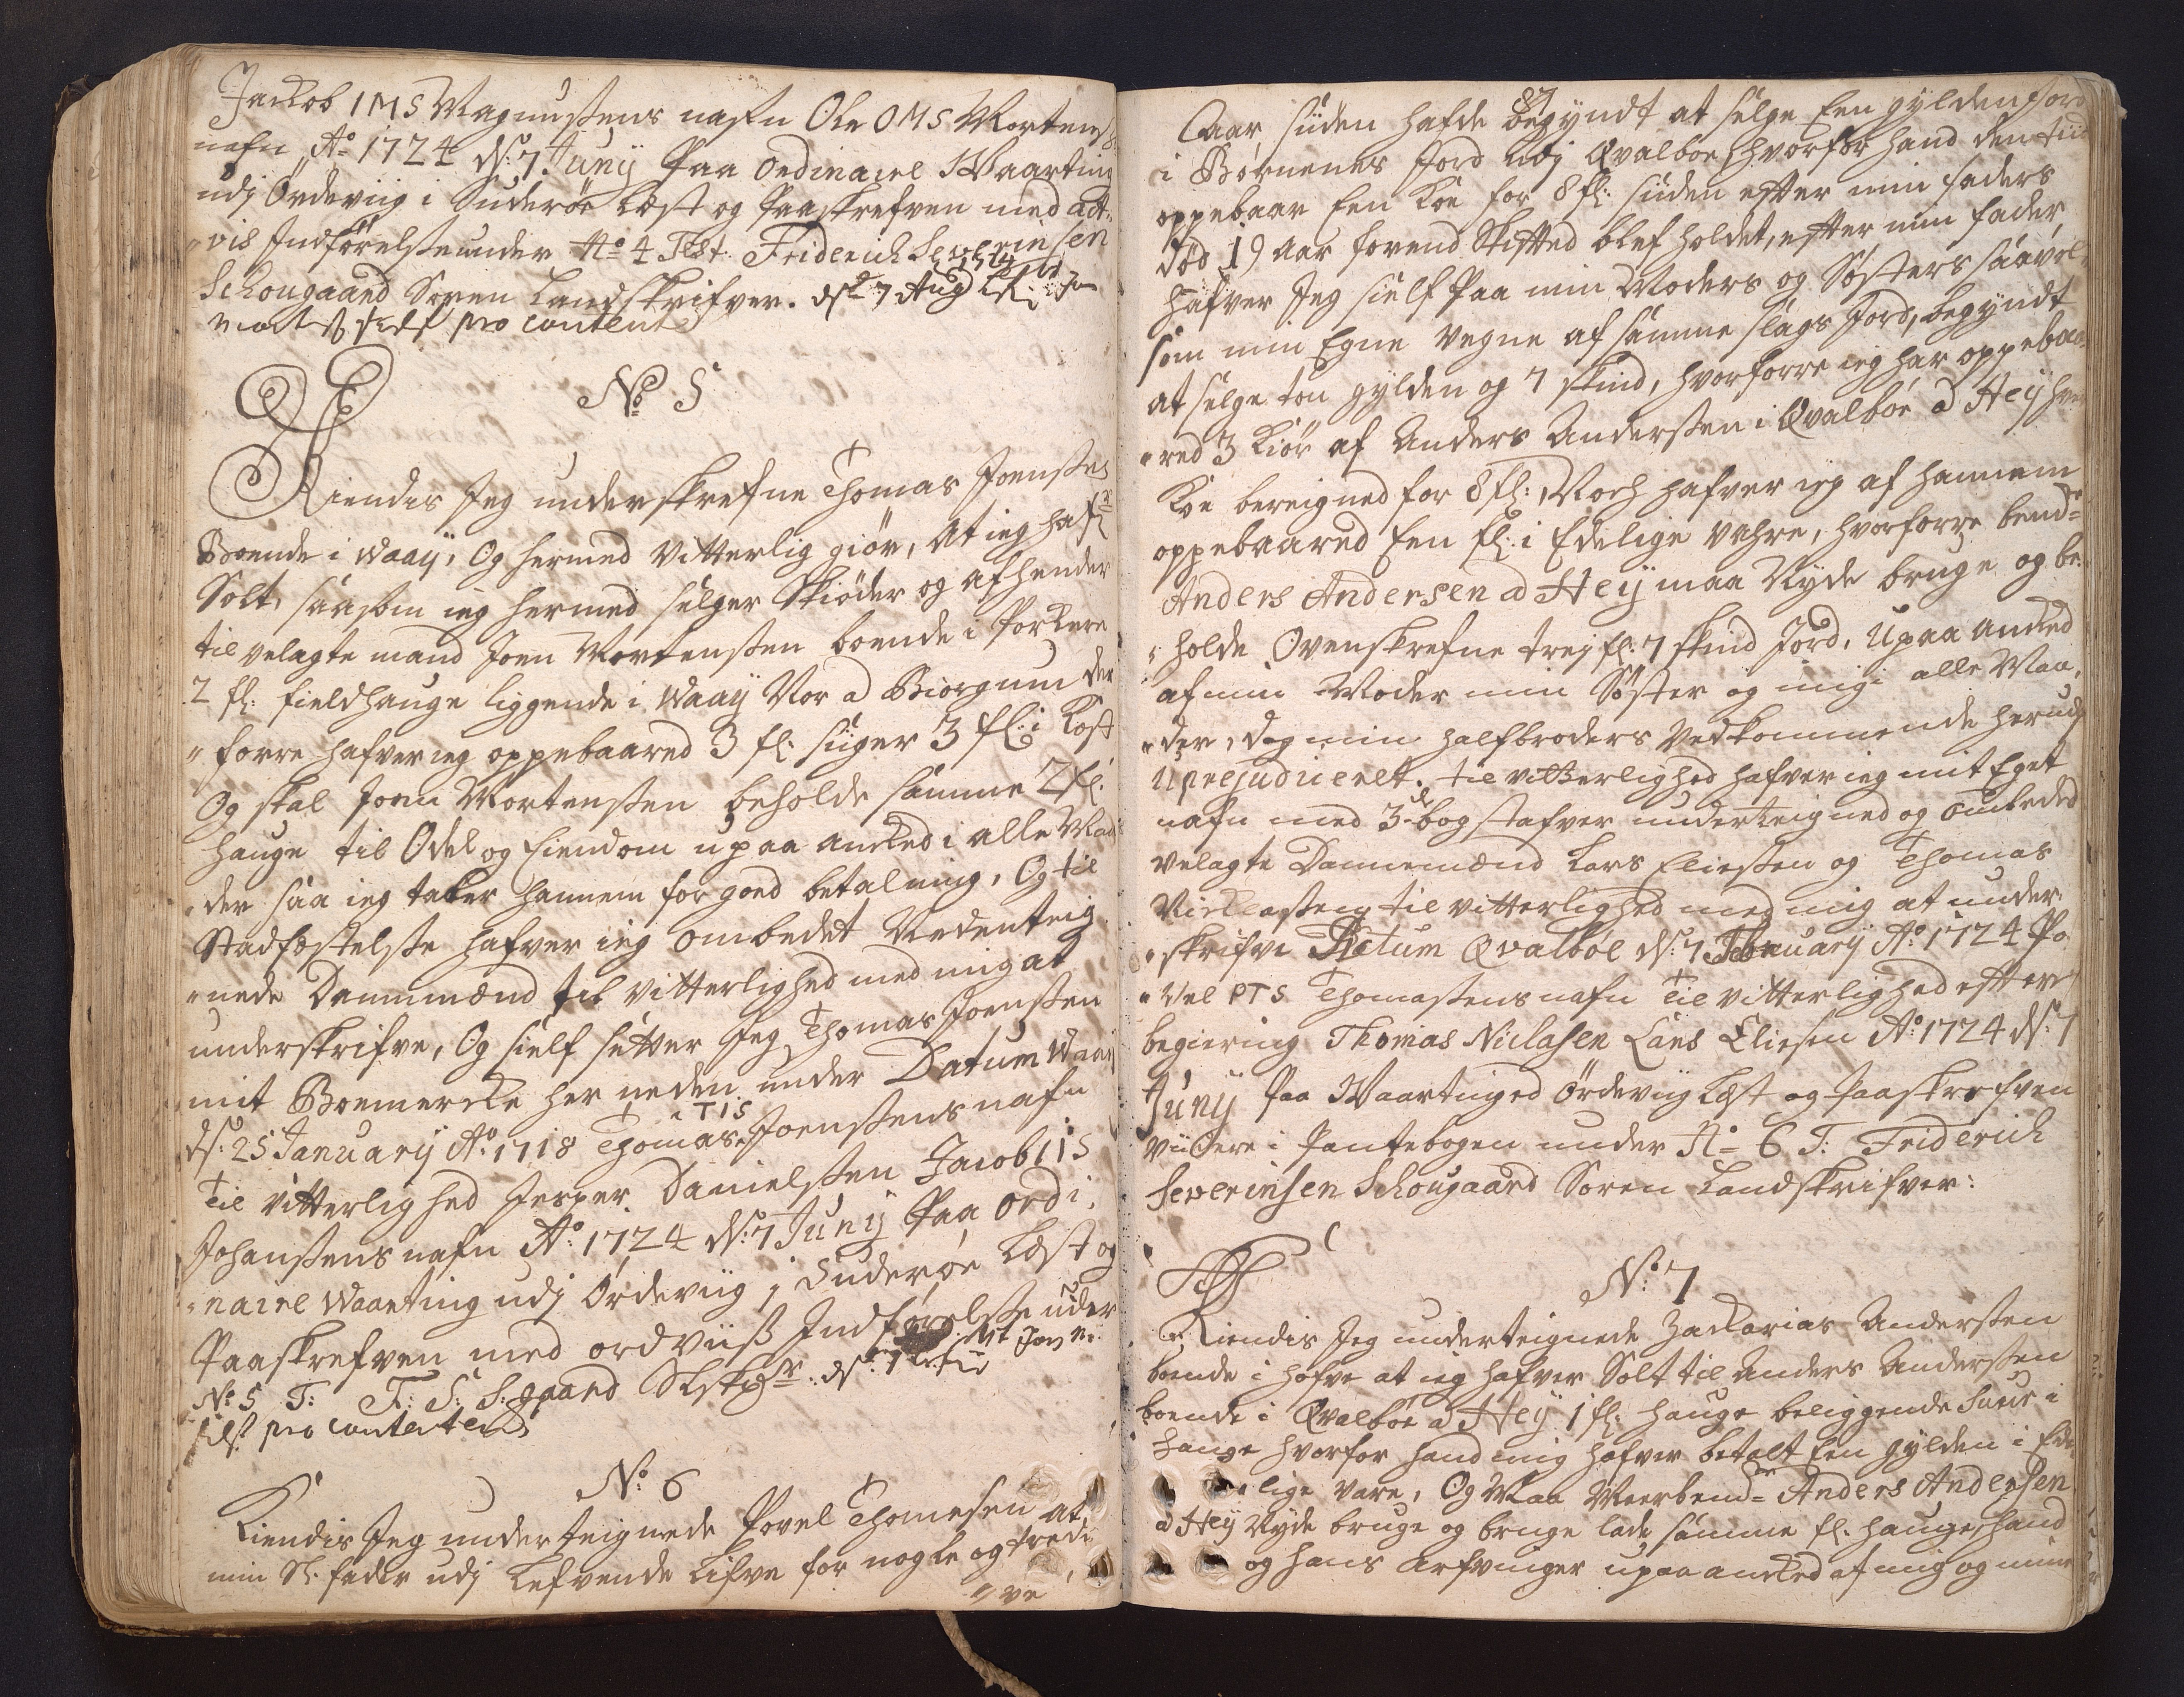 Jackob IMS Magnussens nafn Ole OMS Mortens:
nafn Ao 1724 ds: 7. Junij Paa ordinaire Waarting
udj Ördeviig i Suderöe Læst og Paaskrefven med
vis Indförelse under No 4 Test. Friderich Severinsen
Schougaard Soren Landskrifver. ds 7 Aug
self pro content
No 5
Kiendis Jeg underskrefne Thomas Joensen
Boende i Waaij, Og hermed Vitterlig giör, At ieg hafr
Solt, saasom ieg hermed sælger Skiöder og afhender
til velagte mand Joen Mortensen boende i Porkere
2 fl: fieldhauge liggende i Waaij Nor a Biorgum der
" forre hafver ieg oppebaared 3 fl: siuger 3 fl: i Kost
Og skal Joen Mortensen beholde samme 2 fl:
hauge til Odel og Eiendom upaa ancked i alle Maa
" der saa ieg taker hannem for goed betaling, Og til
Stadfæstelse hafver ieg ombedet Nedenteig
" nede Dannemænd til Vitterlighed med mig at
underskrifve, Og sielf setter Jeg Thomas Joensen
mit Boemercke her neden under Datum Waaij
ds: 25 Januarij Ao: 1718 Thomas TIS Joensens nafn
Til Vitterlighed Jesper Danielsen Jacob IIS
Johansens nafn Ao: 1724 ds: 7 Junij Paa ordi,
" naire Waarting udj Ördeviig j Suderöe Læst og
Paaskrefven med ordviis Indförelse under
No 5 T: F: S: S:gaard SLskr: ds: 7
self pro contertend
No: 6
Kiendis Jeg underteignede Povel Thomesen at
min Sl. fader udj Lefvende Lifve for nogle og tredi
" ve
87
Aar siiden hafde begyndt at selge Een gylden Jord
i Börnenes Jord udj Qvalböe, hvorfor hand den tiid
oppebaar Een Koe for 8 fl: siiden efter min faders
död 19 Aar forend Skifted blef holdet, efter min fader
hafver Jeg sielf Paa min Moders og Sösters saavel
som min Egne Vegne af samme slags Jord, begyndt
at selge tou gylden og 7 skind, hvorforre ieg har oppebaa
" red 3 Kiör af Anders Andersen i Qvalböe a Heij hver
Koe bereigned for 8 fl:, Noch hafver ieg af hannem
oppebaared Een fl: i Edelige Vahre, hvorforre bend=te
Anders Andersen a Heij maa Nyde bruge og be,
" holde Ovenskrefne trej fl. 7 skind Jord, Upaa ancked
af min Moder min Söster og mig i alle Maa,
" der, dog min halfbroders Vedkommende herudj
Uprejudiceret. til vitterlighed hafver ieg mit Eget
nafn med 3de bogstafver underteigned og ombeded
velagte Dannemænd Lars Eliesen og Thomas
Nicklasen til vitterlighed med mig at under
" skrifve Datum Qvalböe ds: 7 Februarij Ao: 1724 Po
" Vel PTS Thomasens nafn Til vitterlighed efter
begiering Thomas Niclasen Lars Eliesen Ao: 1724 ds: 7
Junij Paa Waartinged Ördeviig Læst og Paaskrefven
viidere i Pantebogen under No 6 T: Friderich
Severinsen Schougaard Soren Landskrifver:
No: 7
Kiendis Jeg underteignede Zackarias Andersen
boende i Hofve at ieg hafver Solt til Anders Andersen
boende i Qvalböe a Heij 1 fl. hauge beliggende i
hauge hvorfor hand mig hafver betalt Een gylden i Ede
lige Vare, Og Maa Meerbend=te Anders Andersen
a Heij Nyde bruge og bruge lade samme fl. hauge, hand
og hans Arfvinger upaaancked af mig og mine